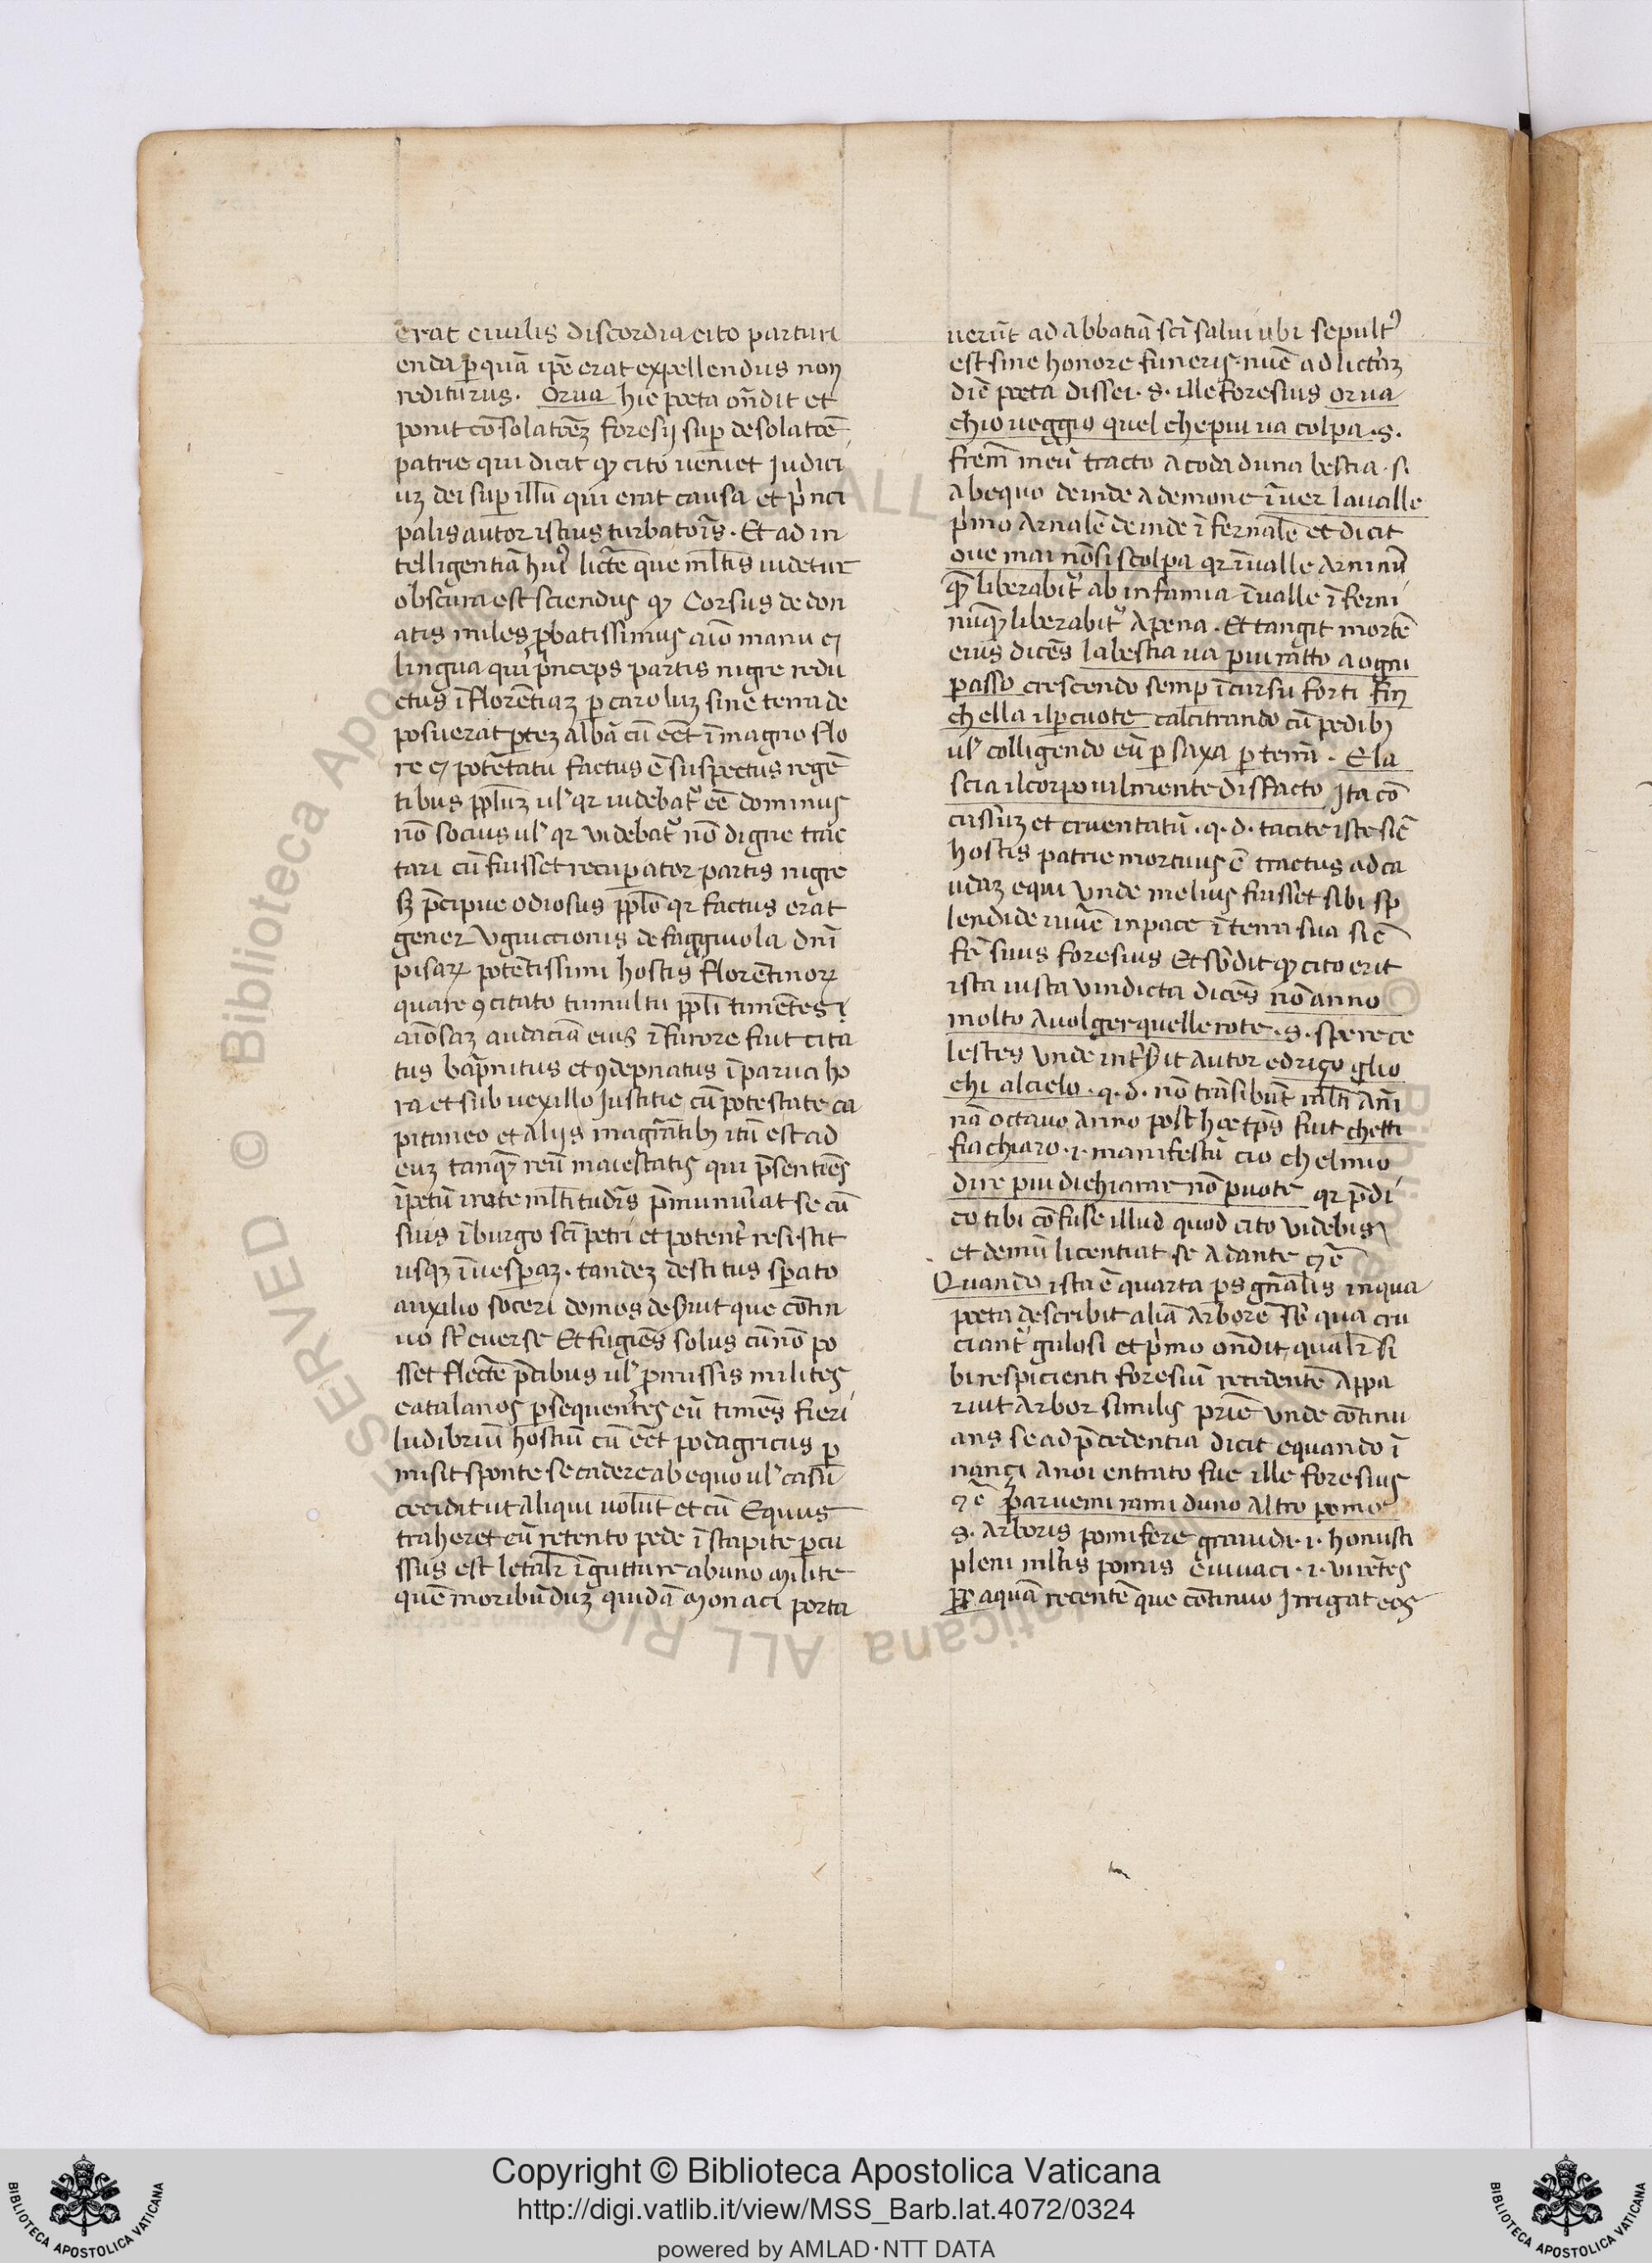 erat ciuilis discordia cito parturi
enda per quā ip̄e erat expellendus non
rediturus. Orua hic poeta on̄dit et
ponit cōsolatōeꝫ foresij sup desolatōe
patrie qui dicit qꝫ cito ueniet Judici
uꝫ dei sup illū qui erat causa et p̄nci
palis autor istius turbatōis. Et ad in
telligentiā huiꝰ lict̄e que ml̄tis uidetur
obscura est sciendus qꝫ Corsus de don
atis miles ꝓbatissimus aīo manu ⁊
lingua qui p̄nceps partis nigre redu
ctus ī florētiaꝫ p caroluꝫ sine terra de
posuerat ꝑteꝫ albā cū eēt ī magno flo
re ⁊ potētatu factus ē suspectus regē
tibus pp̄luꝫ ul' qr uidebatꝰ eē dominus
nō socius ul' qr videbatꝰ nō digne trac
tari cū fuisset recuperator partis nigre
sꝫ p̄cipue odiosus pp̄lo qr factus erat
gener Vguiccionis de faggiuola dn̄i
pisaꝝ potētissimi hostis florētinoꝝ
quare ꝯcitato tumultu pp̄li timētes ī
aīosaꝫ audaciā eius ī furore fuit cita
tus bāpnitus et ꝯdepnatus ī parua ho
ra et sub uexillo Justitie cū potestate ca
pitaneo et alijs magrātibꝫ itū est ad
euꝫ tanqꝫ reū maiestatis qui p̄sentiēs
īpetū irate ml̄titudīs p̄munīuat se cū
suis ī burgo sc̄i petri et potent̄ resistit
usqꝫ ī uesperaꝫ. tandeꝫ destitus sperato
auxilio soceri domos deseruit que cōtin
uo st̄ euerse Et fugiēs solus cū nō po
sset flectē p̄cibus ul' ꝓmissis milites
catalanos ꝑsequentes eū timēs fieri
ludibriū hostiū cū eēt podagricus ꝑ
misit sponte se cadere ab equo ul' casū
cecidit ut aliqui uolūt et cū Equus
traheret eū retento pede ī stapite ꝑcu
ssus est letalr̄ ī gutture ab uno milite
quē moribūduꝫ quidā monaci porta
uerūt ad abbatiā sc̄i salui ubi sepultꝰ
est sine honore funeris. nūc ad lict̄aꝫ
diē poeta dissei. s. ille foresius orua
chio ueggio quel che piu na colpa. s.
frēm meū tracto a coda duna bestia. s.
ab equo deinde a demone īuer la ualle
p̄mo arnalē deinde īfernalē et dicit
oue mai nōsi scolpa qr ī ualle arni nū
qꝫ liberabitꝰ ab infamia ī ualle īferni
nūqꝫ liberabitꝰ a pena. Et tangit mortē
eius dicēs la bestia ua piu ratto a ogni
passo crescendo semp ī cursu forti fin
chella il ꝑcuote calcitrando cū pedibꝫ
ul' colligendo eū p saxa p terrā. E la
scia il corpo uilmente disfacto Ita cō
cussuꝫ et cruentatū. q. d. tacite iste sic
hostis patrie mortuus ē tractus ad ca
udaꝫ equi Vnde melius fuisset sibi sp
lendide uiuē in pace ī terra sua sic
fr̄ suus foresius Et sb̄dit qꝫ cito erit
ista iusta vindicta dicēs nō anno
molto a uolger quelle rote. s. spere ce
lestes Vnde īnt sb̄it autor e driço glio
chi al cielo. q. d. nō trāsibūt ml̄ti anī
nā octauo anno post hoc tp̄s fuit chetti
fia chiaro. i. manifestū cio chel mio
dire piu dichiarar nō puote qr p̄di
co tibi cōfuse illud quod cito videbis
et demū licentiat se a dante ⁊c̄
Quando ista ē quarta ps gn̄alis in qua
poeta describit aliā arborē sb̄ qua cru
ciantꝰ gulosi et p̄mo on̄dit qualr̄ si
bi respicienti foresiū recedentē appa
ruit arbor similis prīe Vnde cōtinu
ans se ad p̄cedentia dicit e quando ī
nançi a noi entrato fue ille foresius
⁊c̄ paruemi rami duno altro pomo
s. arboris pomifere grauidi. i. honusti
pleni ml̄tis pomis e uiuaci. i. virētes
ꝓpꝛ aquā recentē que cōtinuo Irrigat eos
Copyright © Biblioteca Apostolica Vaticana
http://digi.vatlib.it/view/MSS_Barb.lat.4072/0324
powered by AMLAD·NTT DATA